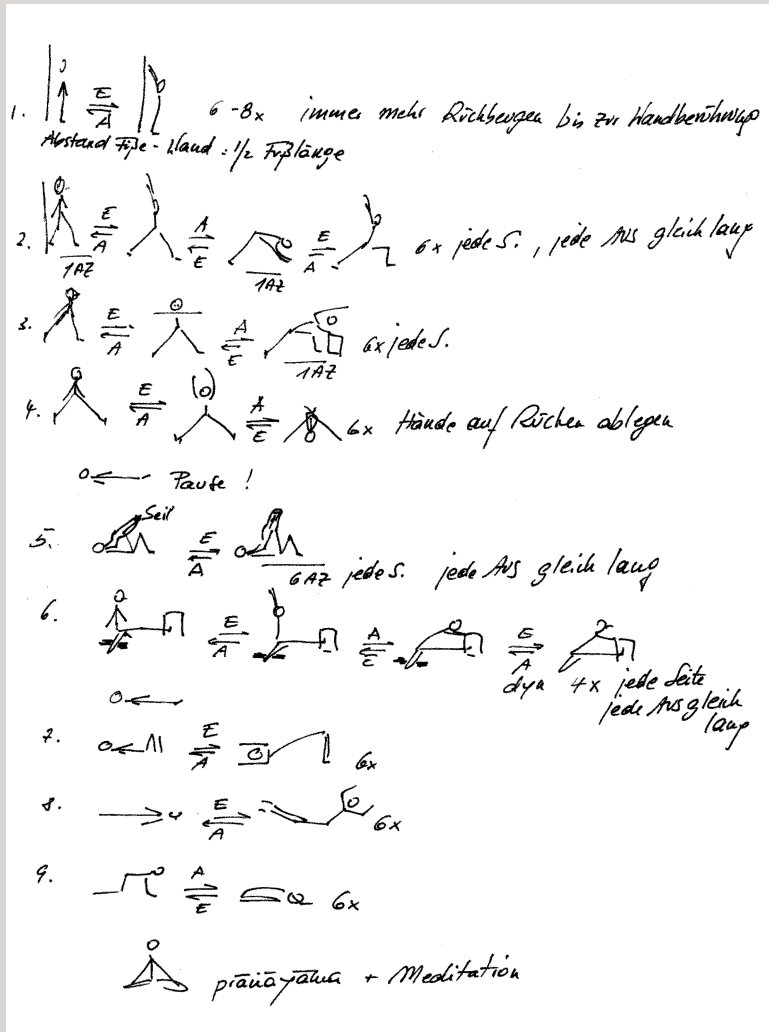 1. E A 6-8x immer mehr Rückbeugen bis zur Wandberührung
Abstand Füße - Wand : 1/2 Fußlänge
2. E A A E E A 6x jede S., jede Äus gleich lang
1AZ 1AZ
3. E A A E 6x jede S.
1AZ
4. E A A E 6x Hände auf Rücken ablegen
Pause !
Seil
5. E A
6AZ jede S. jede Äus gleich lang
6. E A A E E A
dyn 4x jede Seite
jede Äus gleich
lang
7. E A 6x
8. E A 6x
9. A E 6x
prānāyāma + Meditation